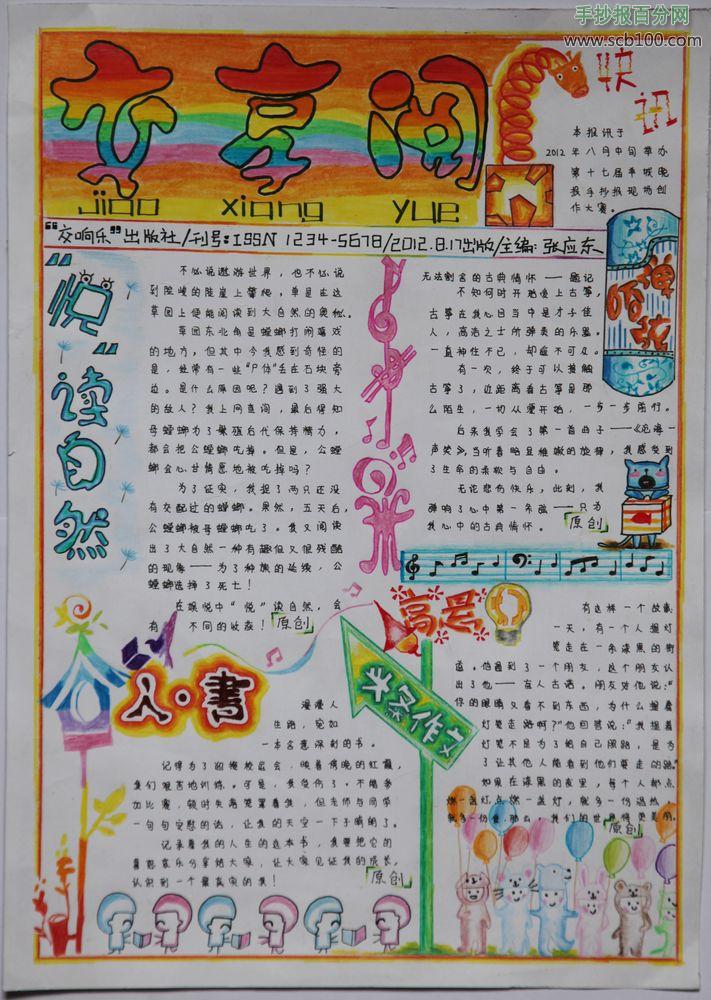 手抄报百分网
www.scb100.com
交享阅
jiao xiang yue
快讯
本报讯于
2012年八月中旬举办
第十七届羊城晚
报手抄报现场创
作大赛。
"交响乐"出版社/刊号:ISSN 1234-5678/2012.8.17出版/主编:张应东
"悦"读自然
不必说遨游世界，也不必说
到险峻的陡崖上攀爬，单是在这
草园上便能阅读到大自然的奥秘。
草园东北角是螳螂打闹嬉戏
的地方，但其中今我感到奇怪的
是，经常有一些"尸体"丢在石块旁
边。是什么原因呢？遇到了强大
的敌人？我上网查阅，最后得知
母螳螂为了繁殖后代保存精力，
都会把公螳螂吃掉。但是，公螳
螂会心甘情愿地被吃掉吗？
为了证实，我捉了两只还没
有交配过的螳螂。果然，五天后，
公螳螂被母螳螂吃了。我又阅读
出了大自然一种有趣但又很残酷
的现象——为了种族的延续，公
螳螂选择了死亡！
在愉悦中"悦"读自然，会
有不同的收获！
原创
弹陌弦
无法割舍的古典情怀——题记
不知何时开始爱上古筝，
古筝在我心目当中是才子佳
人，高洁之士所弹奏的乐器。
一直神往不已，却触不可及。
有一次，终于可以接触
古筝了，近距离看古筝是那
么陌生，一切从爱开始，一步一步前行。
后来我学会了第一首曲子——《沧海一
声笑》，当听着略显稚嫩的旋律，我感受到
了生命的柔软与自由。
无论悲伤快乐，此刻，我
弹响了心中第一布弦——只为
我心中的古典情怀。
原创
人·書
漫漫人
生路，宛如
一本名意深刻的书。
记得为了迎接校运会，映着傍晚的红霞，
我们艰苦地训练。可是，我负伤了。不能参
加比赛，顿时失落笼罩着我，但老师与同学
一句句安慰的话，让我的天空一下子晴朗了。
记录着我的人生的这本书，我要把它的
喜怒哀乐分享给大家，让大家见证我的成长，
认识到一个最真实的我！
原创
头条作文
"高晃"
有这样一个故事：
一天，有一个人提灯
笼走在一条漆黑的街
道。他遇到了一个朋友，这个朋友认
出了他——盲人古诺。朋友对他说："
你的眼睛又看不到东西，为什么提着
灯笼走路啊？"他回答说："我提着
灯笼不是为了给自己照路，是为
了让其他人能看到他们要走的路。"
如果在漆黑的夜里，每个人都点
燃一盏灯，点燃一盏灯，就多一份温热，
就多一份爱。那么，我们的世界将更美丽。
原创